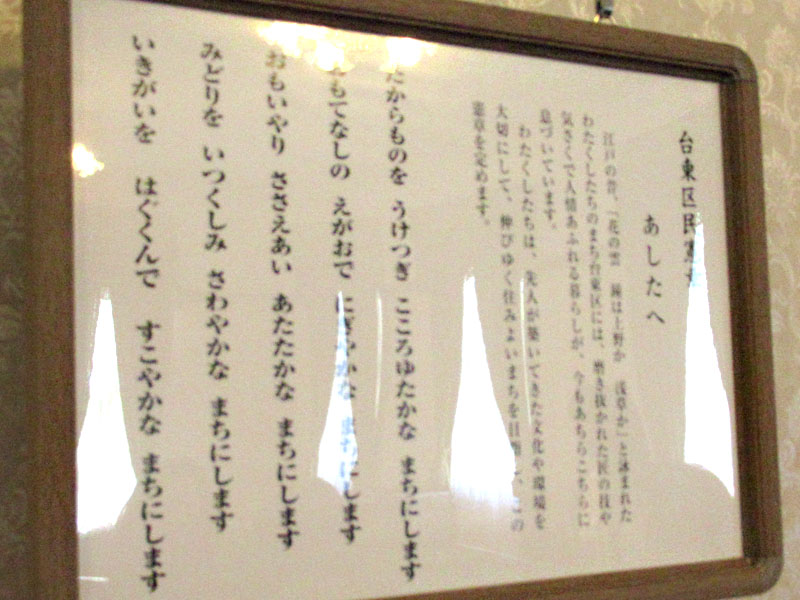 台東区民憲章
あしたへ
江戸の昔、「花の雲 鐘は上野か 浅草か」と詠まれた
わたくしたちのまち台東区には、磨き抜かれた匠の技や
気さくで人情あふれる暮らしが、今もあちらこちらに
息づいています。
わたくしたちは、先人が築いてきた文化や環境を
大切にして、伸びゆく住みよいまちを目指し、この
憲章を定めます。
たからものを うけつぎ こころゆたかな まちにします
おもてなしの えがおで にぎやかな まちにします
おもいやり ささえあい あたたかな まちにします
みどりを いつくしみ さわやかな まちにします
いきがいを はぐくんで すこやかな まちにします